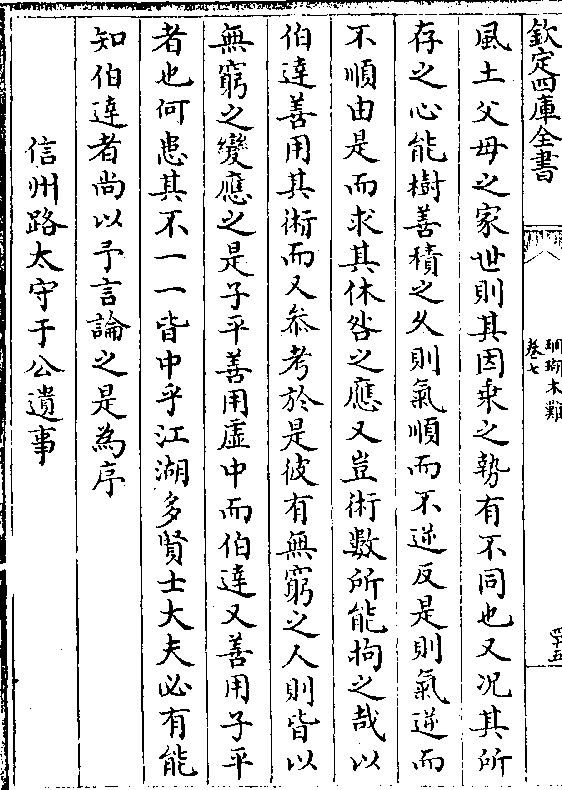 欽定四庫全書
珊瑚木難
卷七
四十五
風土父母之家世則其因乗之勢有不同也又况其所
存之心能樹善積之久則氣順而不逆反是則氣逆而
不順由是而求其休咎之應又豈術數所能拘之哉以
伯逹善用其術而又叅考於是彼有無窮之人則皆以
無窮之變應之是子平善用虚中而伯逹又善用子平
者也何患其不一一皆中乎江湖多賢士大夫必有能
知伯逹者尚以予言論之是為序
信州路太守于公遺事